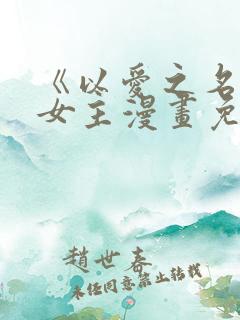 《以愛之名
女主漫畫免
趙世春
未经同意禁止转载